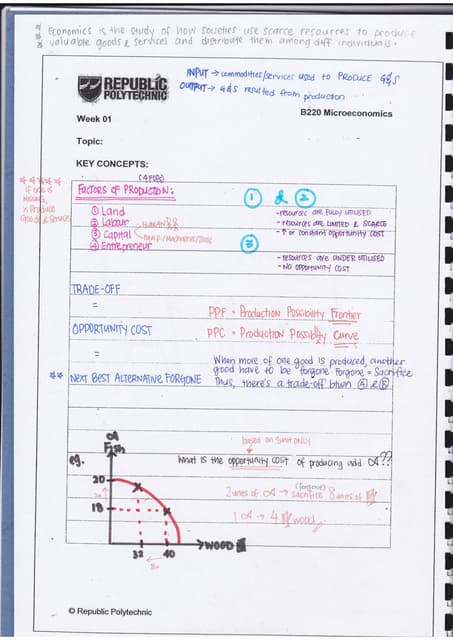 Economics is the study of how societies use scarce resources to produce
valuable goods & services and distribute them among diff individuals.
INPUT → commodities/services used to PRODUCE G&S
OUTPUT → G&S resulted from production
REPUBLIC
POLYTECHNIC
B220 Microeconomics
Week 01
Topic:
KEY CONCEPTS:
(4 FOPs)
FACTORS OF PRODUCTION:
① Land
② Labour
HUMAN
③ Capital
④ Entrepreneur
If one is
missing,
x Produce
Goods & Services
① & ②
- resources are FULLY UTILISED
- resources are LIMITED & SCARCE
- ↑ or constant opportunity cost
③
- resources are UNDER UTILISED
- NO OPPORTUNITY COST
TRADE-OFF
=
OPPORTUNITY COST
=
** NEXT BEST ALTERNATIVE FORGONE
PPF = Production Possibility Frontier
PPC = Production Possiblity Curve
When more of one good is produced, another
good have to be forgone. Forgone = Sacrifice
Thus, there's a trade-off btwn Ⓐ & Ⓑ
based on 1unit only
What is the opportunity cost of producing add ??
(forgone)
2 units of → sacrifice 8 units of
1 → 4 wood
eg.
Fish
20
18
2
32
40
8
WOOD
© Republic Polytechnic